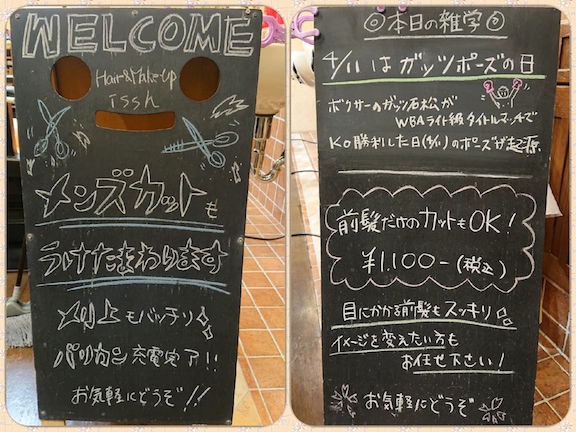 WELCOME
Hair&Make-up
issh
メンズカットも
うけたまわります
メリ上もバッチリ
バリカン充電完了!!
お気軽にどうぞ!!
◎本日の雑学◎
4/11はガッツポーズの日
ボクサーのガッツ石松が
WBAライト級タイトルマッチで
KO勝利した日(4/11)のポーズが起源
前髪だけのカットもOK!
¥1,100-(税込)
目にかかる前髪もスッキリ
イメージを変えたい方も
お任せ下さい!
お気軽にどうぞ